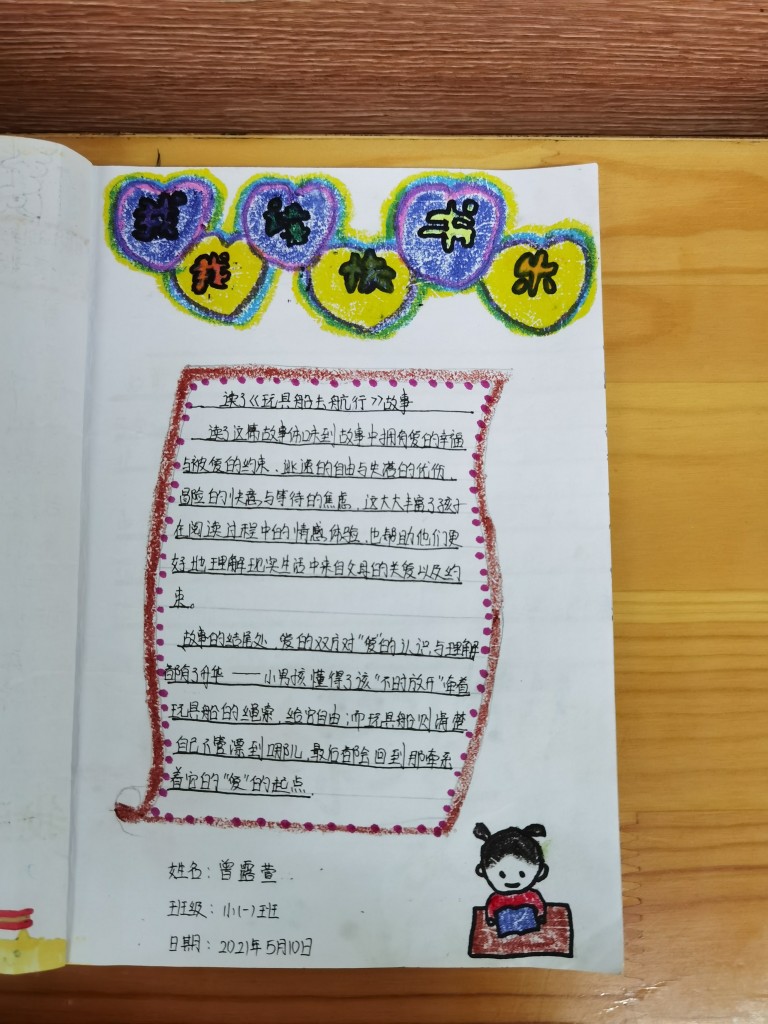 我读书
我快乐
读了《玩具船去航行》故事
读了这篇故事体味到故事中拥有爱的幸福
与被爱的约束、逃逸的自由与失落的忧伤、
冒险的快意与等待的焦虑，这大大丰富了孩子
在阅读过程中的情感体验，也帮助他们更
好地理解现实生活中来自父母的关爱以及约
束。
故事的结尾处，爱的双方对“爱”的认识与理解
都有了升华——小男孩懂得了该“不时放开”牵着
玩具船的绳索，给它自由；而玩具船则清楚
自己不管漂到哪儿，最后都会回到那牵系
着它的“爱”的起点．
姓名：曾露萱
班级：小(一)班
日期：2021年5月10日